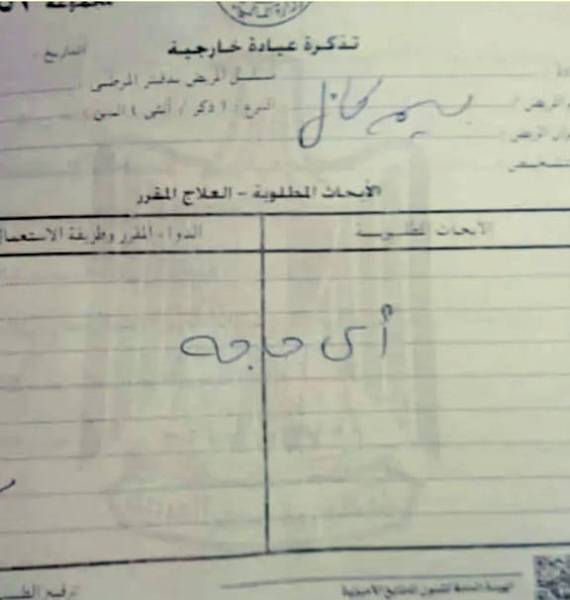 مجموعة
تذكرة عيادة خارجية
التاريخ :
مسلسل المريض بدفتر المرضى :
النوع : ( ذكر / أنثى ) السن :
الأبحاث المطلوبة - العلاج المقرر
الأبحاث المطلوبة
الدواء المقرر وطريقة الاستعمال
أى حاجه
الهيئة العامة لشئون المطابع الأميرية
توقيع